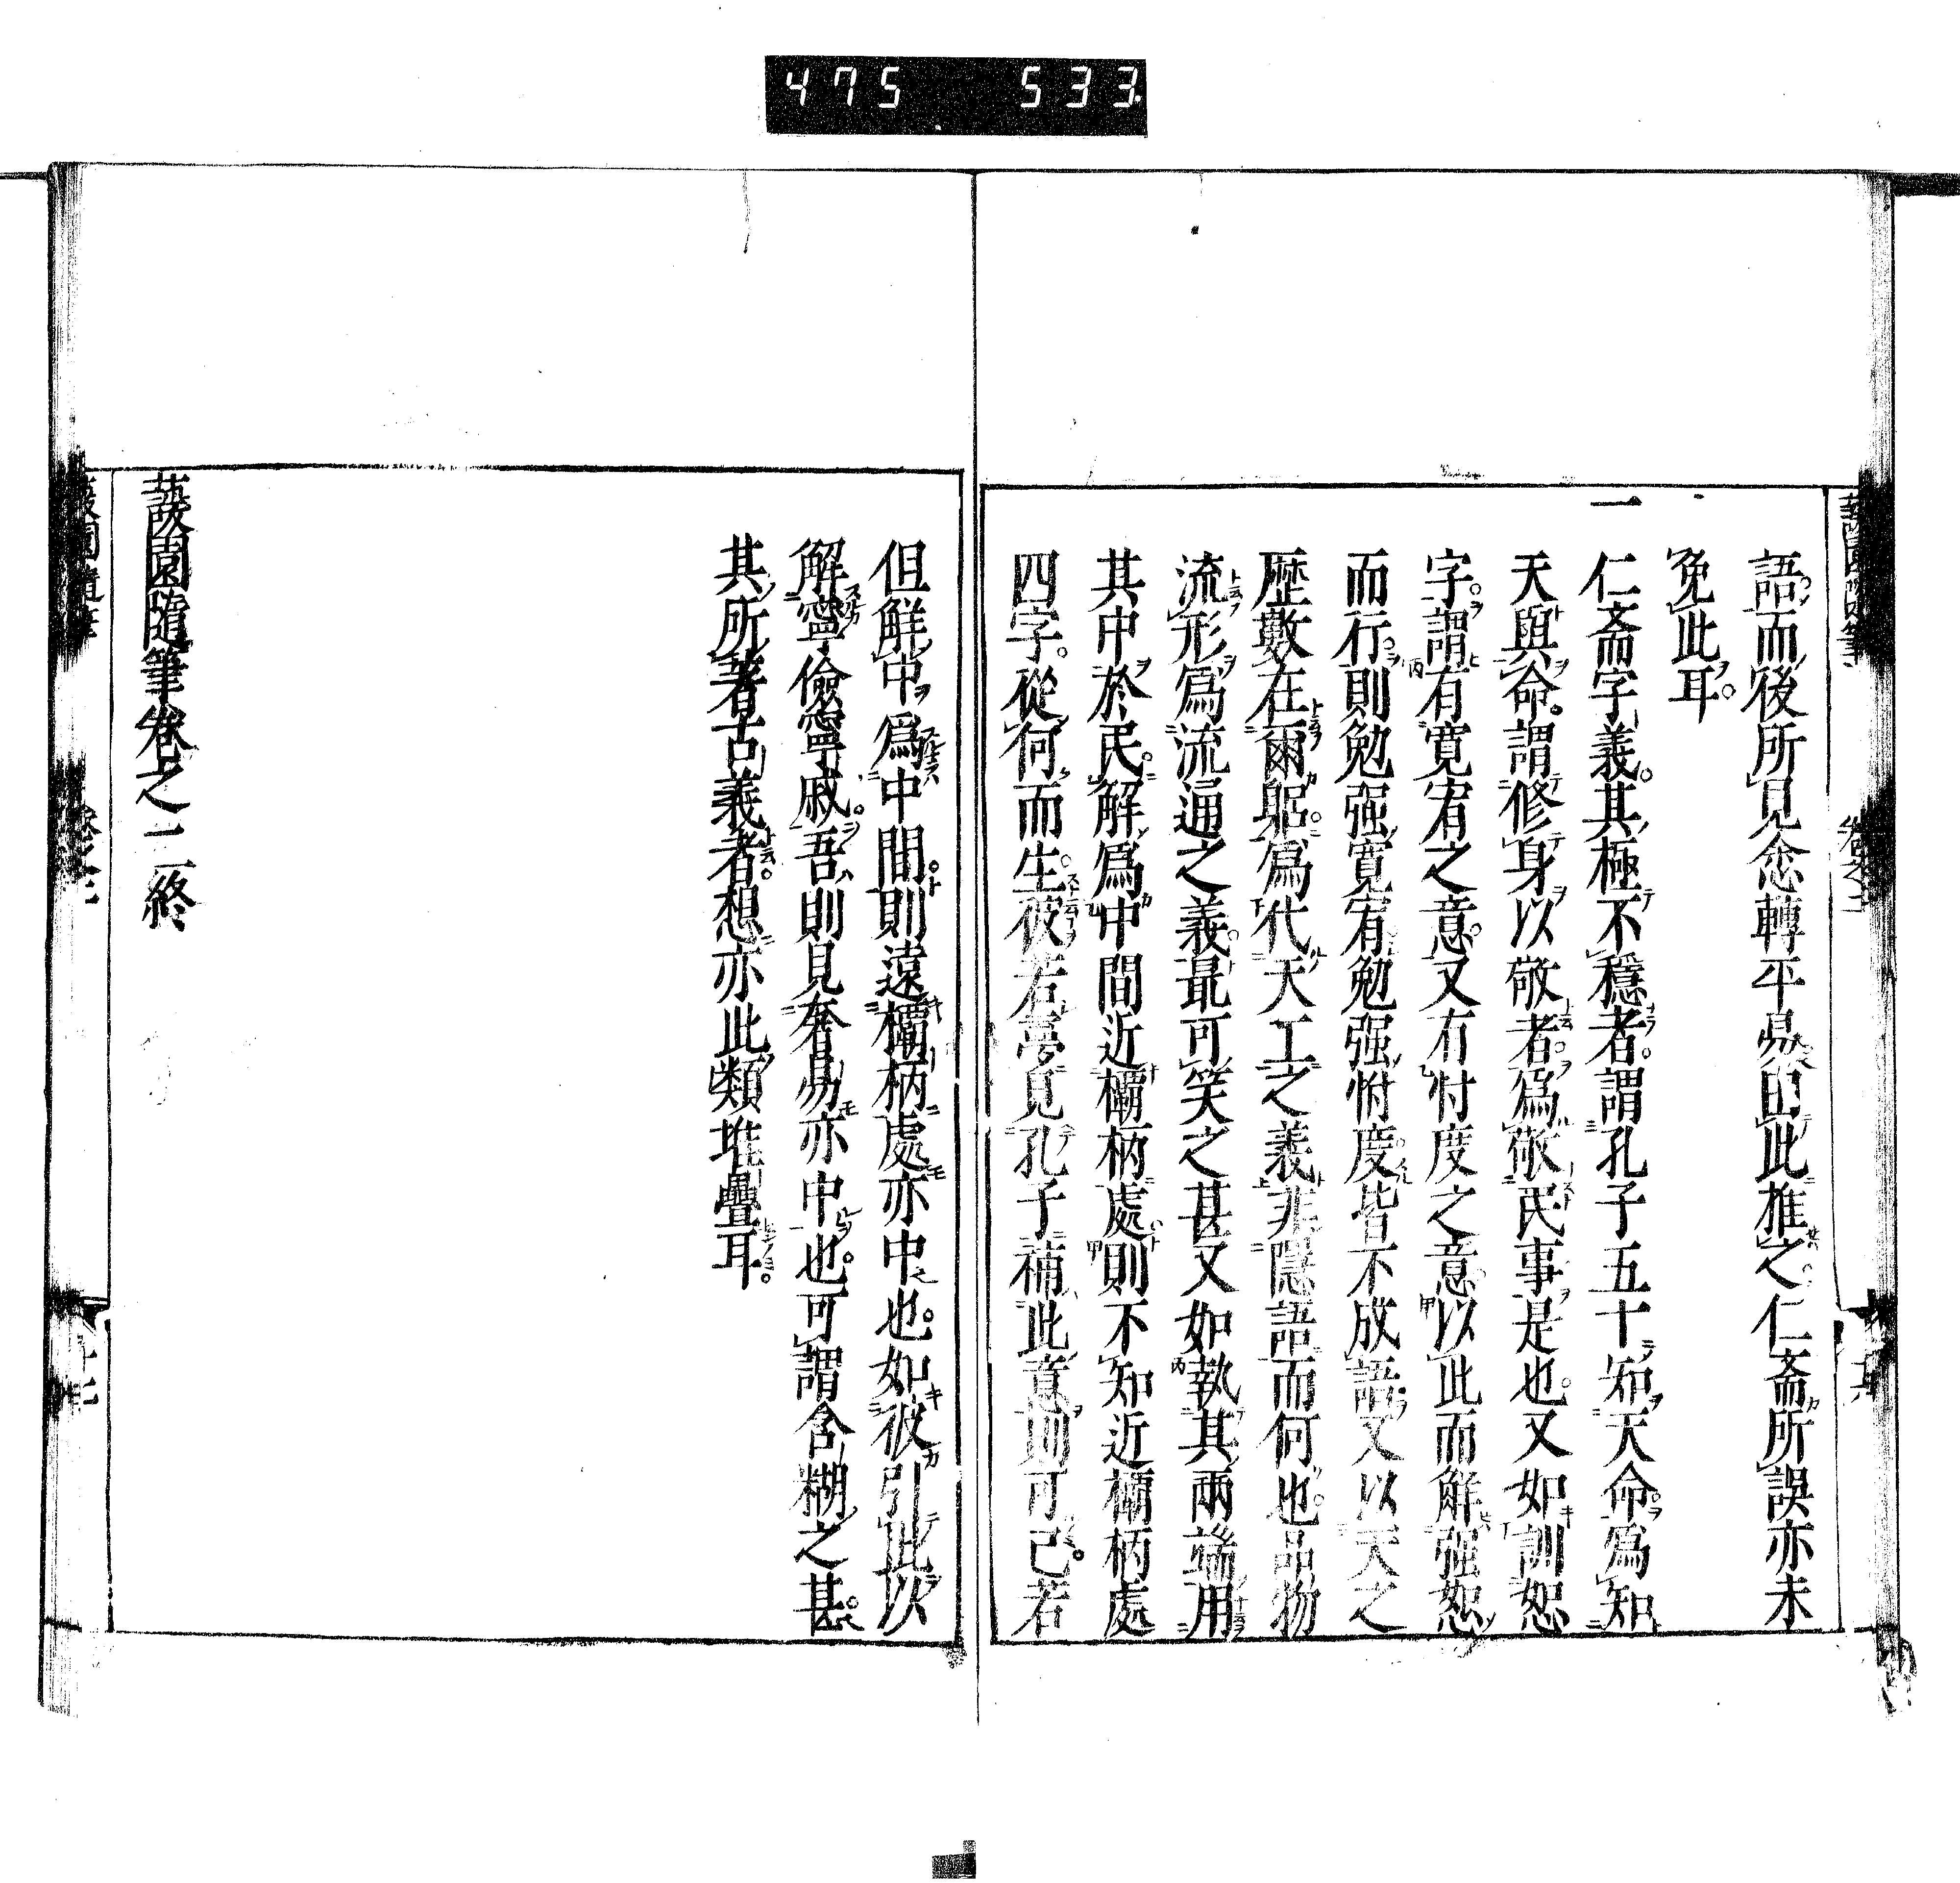 475 533
語而後所見愈轉平易由此推之仁斎所誤亦未
免此耳
一仁斎字義其極不穩者謂孔子五十知天命為知
天與命謂修身以敬者為敬民事是也又如訓恕
字謂有寛宥之意又有忖度之意以此而解强恕
而行則勉强寛宥勉强忖度皆不成語又以天之
歷數在爾躬為代天工之義非隱語而何也品物
流形爲流通之義最可笑之甚又如執其兩端用
其中於民解爲中間近欛柄處則不知近欛柄處
四字從何而生彼若夢見孔子補此意則可已若
但解中爲中間則遠欛柄處亦中也如彼引此以
解寧儉寧戚吾則見奢易亦中也可謂含糊之甚
其所著古義者想亦此類堆疊耳
蘐園隨筆卷之二終